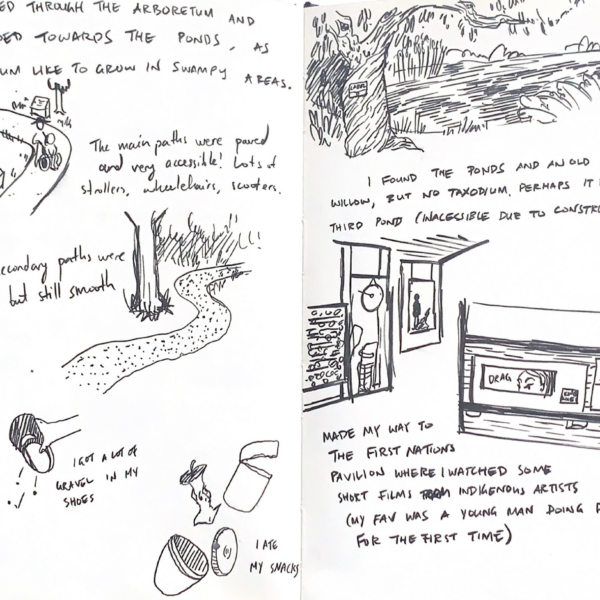 ED THROUGH THE ARBORETUM AND
DED TOWARDS THE PONDS, AS
UM LIKE TO GROW IN SWAMPY AREAS.
The main paths were paved
and very accessible! Lots of
strollers, wheelchairs, scooters.
econdary paths were
but still smooth
I GOT A LOT OF
GRAVEL IN MY
SHOES
I ATE
MY SNACKS
LABEL
I FOUND THE PONDS AND AN OLD
WILLOW, BUT NO TAXODIUM. PERHAPS IT
THIRD POND (INACESSIBLE DUE TO CONSTRU
DRAG
MADE MY WAY TO
THE FIRST NATIONS
PAVILION WHERE I WATCHED SOME
SHORT FILMS FROM INDIGENOUS ARTISTS
(MY FAV WAS A YOUNG MAN DOING
FOR THE FIRST TIME)